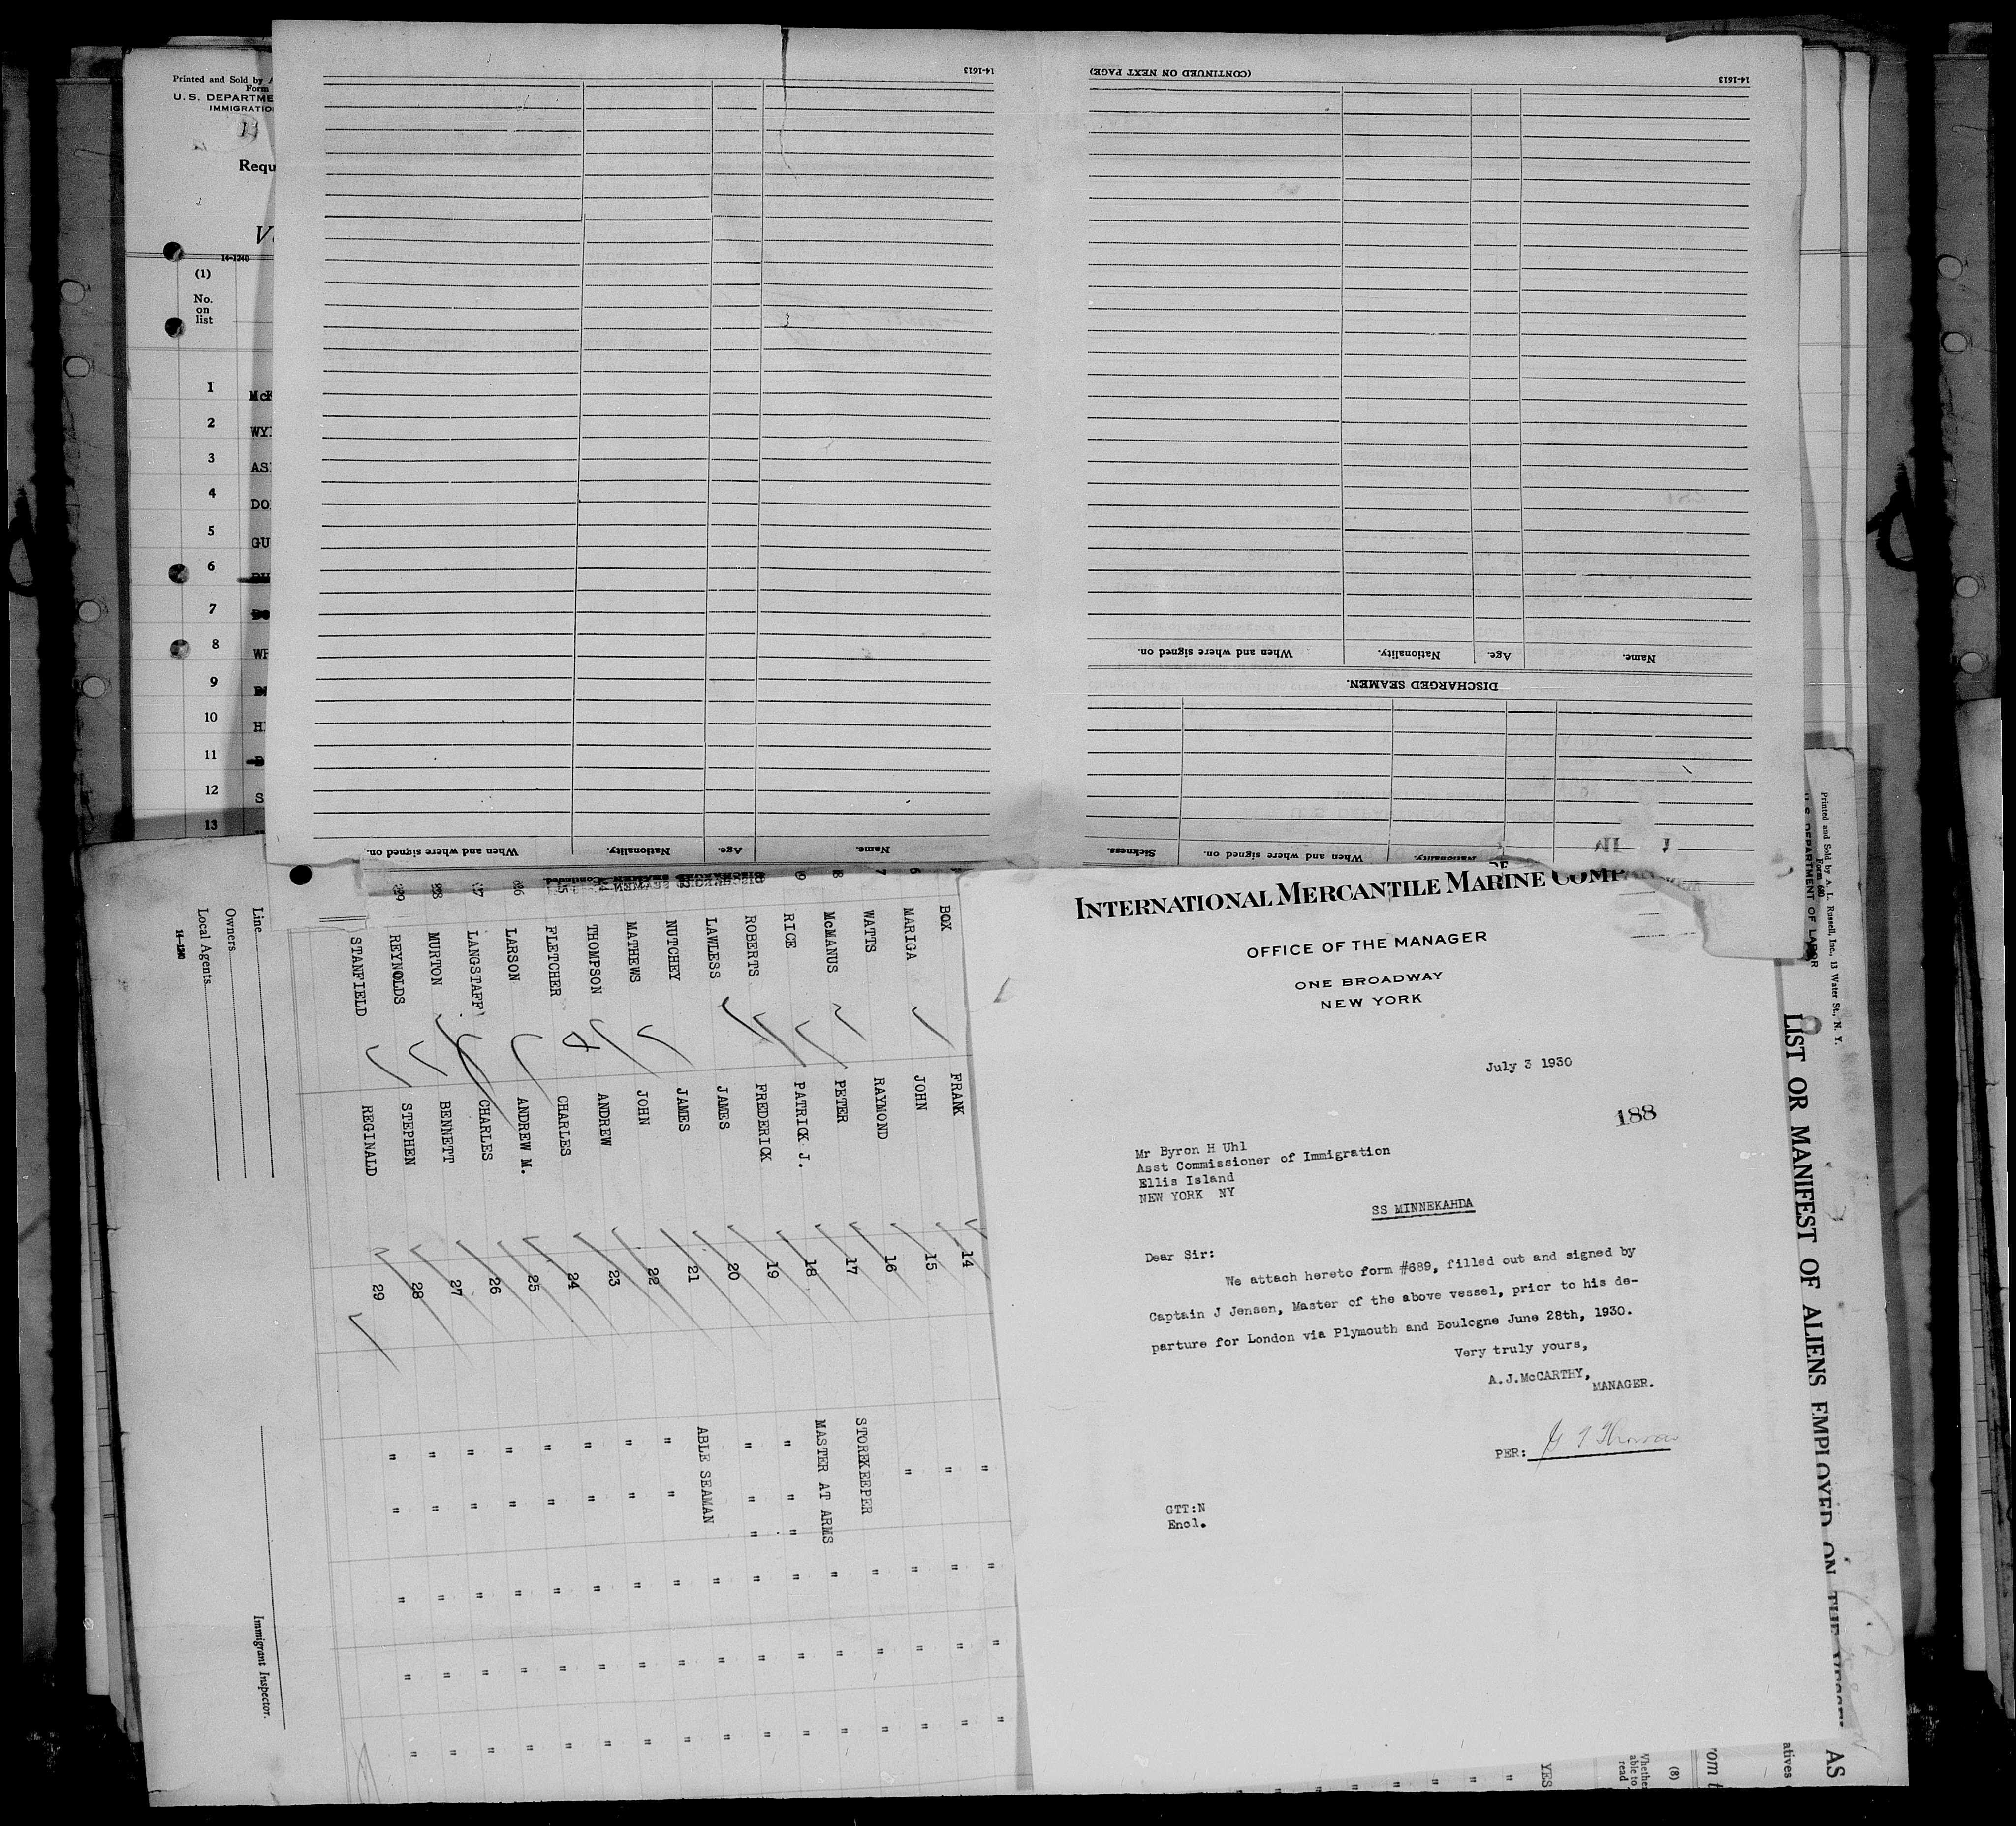 Printed and Sold by
Form
U. S. DEPARTME
IMMIGRATIO
Requ
14-1240
(1)
No.
on
list
1 McK
2 WY
3 AS
4 DO
5 GU
6
7
8
9
10 H
11
12 S
13
14-1613
When and where signed on.
Nationality.
Age.
Name.
DISCHARGED SEAMEN Continued
(CONTINUED ON NEXT PAGE)
14-1613
When and where signed on.
Nationality.
Age.
Name.
DISCHARGED SEAMEN.
Sickness.
When and where signed on.
Nationality.
INTERNATIONAL MERCANTILE MARINE COMPA
OFFICE OF THE MANAGER
ONE BROADWAY
NEW YORK
July 3 1930
188
Mr Byron H Uhl
Asst Commissioner of Immigration
Ellis Island
NEW YORK NY
SS MINNEKAHDA
Dear Sir:
We attach hereto form #689, filled out and signed by
Captain J Jensen, Master of the above vessel, prior to his de-
parture for London via Plymouth and Boulogne June 28th, 1930.
Very truly yours,
A.J.McCARTHY,
MANAGER.
PER:
GTT:N
Encl.
Printed and Sold by A. L. Russell, Inc., 13 Water St., N. Y.
Form 680
U. S. DEPARTMENT OF LABOR
LIST OR MANIFEST OF ALIENS EMPLOYED ON THE VESSEL AS
atives
rom t
(8)
Whether
able to
read
YES
" " " " " " " "
14 " " " "
BOX FRANK 15 " " " "
MARIGA JOHN 16 " " " "
7 WATTS RAYMOND 17 STOREKEEPER " " "
8 McMANUS PETER 18 MASTER AT ARMS " " "
9 RICE PATRICK J. 19 " " " " " "
ROBERTS FREDERICK 20 " " " " " "
LAWLESS JAMES 21 ABLE SEAMAN " " "
NUTCHEY JAMES 22 " " " " "
MATHEWS JOHN 23 " " " " "
THOMPSON ANDREW 24 " " " " "
FLETCHER CHARLES 25 " " " " "
LARSON ANDREW M. 26 " " " " "
LANGSTAFF CHARLES 27 " " " " "
MURTON BENNETT 28 " " " " "
REYNOLDS STEPHEN 29 " " " " "
STANFIELD REGINALD
Line
Owners
Local Agents
14-1240
Immigrant Inspector.